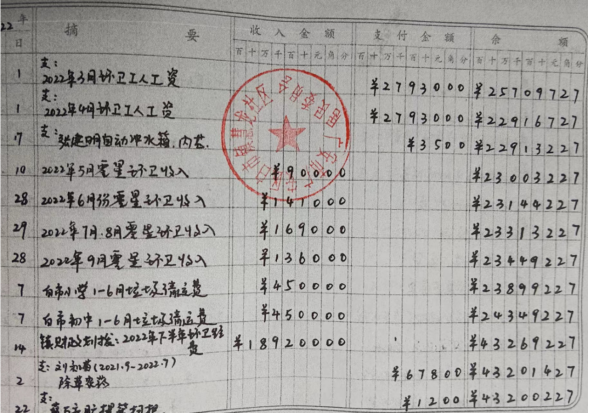 22 年
日 摘 要 收入金额 支付金额 余 额
百十万千百十元角分 百十万千百十元角分 百十万千百十元角分
支:
1 2022年3月环卫工人工资 ¥2793000 ¥25709727
支:
1 2022年4月环卫工人工资 ¥2793000 ¥22916727
17 支: 自动冲水箱、内芯. ¥3500 ¥22913227
10 2022年5月零星环卫收入 ¥90000 ¥23003227
28 2022年6月份零星环卫收入 ¥141000 ¥23144227
29 2022年7月.8月零星环卫收入 ¥169000 ¥23313227
28 2022年9月零星环卫收入 ¥136000 ¥23449227
7 白市小学1-6月垃圾清运费 ¥450000 ¥23899227
7 白市初中1-6月垃圾清运费 ¥450000 ¥24349227
14 镇财政划拨:2022年下半年环卫经费 ¥18920000 ¥43269227
支: (2021.9-2022.7)
2 除草农药 ¥67800 ¥43201427
支:
22 ¥1200 ¥43200227